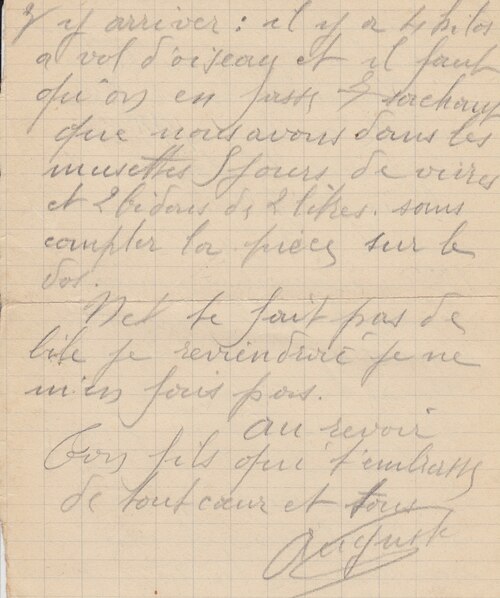 y arriver : il y a 4 kilos
a vol d'oiseau et il faut
qu'on en fasse sachant
que nous avons dans les
musettes 5 jours de vivres
et 2 bidons de 2 litres. sans
compter la pièce sur le
dos.
Net te fait pas de
bile je reviendrai je ne
m'en fais pas.
au revoir
Ton fils qui t'embrasse
de tout cœur et tous
Auguste